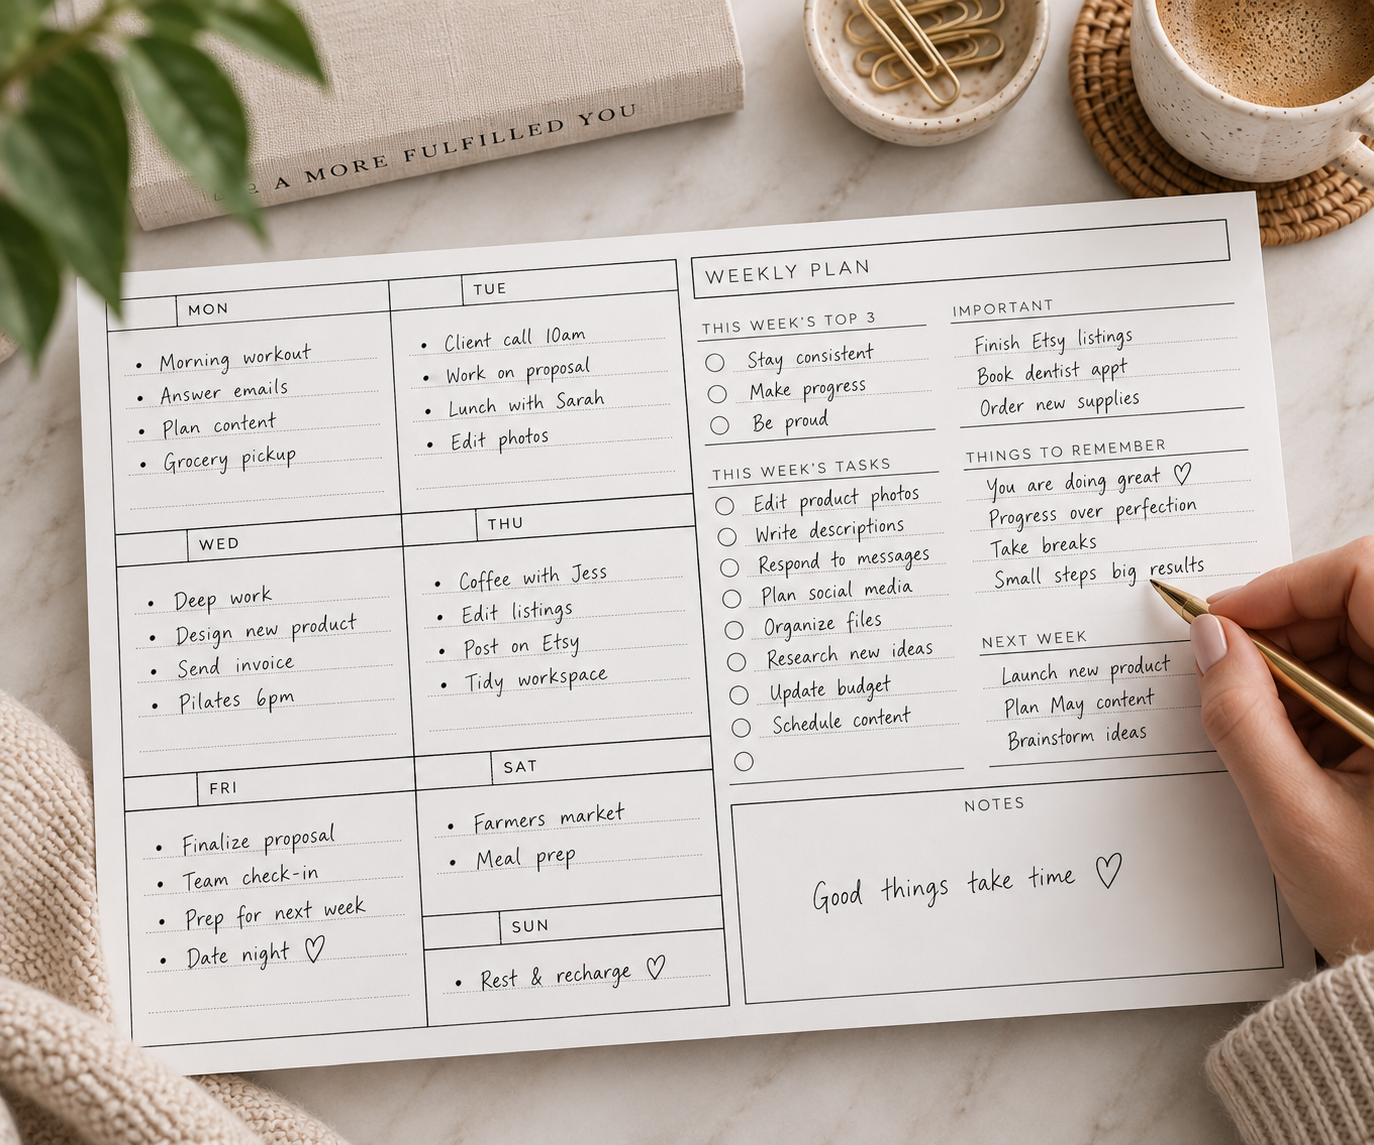 A MORE FULFILLED YOU
MON
Morning workout
Answer emails
Plan content
Grocery pickup
TUE
Client call 10am
Work on proposal
Lunch with Sarah
Edit photos
WED
Deep work
Design new product
Send invoice
Pilates 6pm
THU
Coffee with Jess
Edit listings
Post on Etsy
Tidy workspace
FRI
Finalize proposal
Team check-in
Prep for next week
Date night ♡
SAT
Farmers market
Meal prep
SUN
Rest & recharge ♡
WEEKLY PLAN
THIS WEEK'S TOP 3
Stay consistent
Make progress
Be proud
THIS WEEK'S TASKS
Edit product photos
Write descriptions
Respond to messages
Plan social media
Organize files
Research new ideas
Update budget
Schedule content
IMPORTANT
Finish Etsy listings
Book dentist appt
Order new supplies
THINGS TO REMEMBER
You are doing great ♡
Progress over perfection
Take breaks
Small steps big results
NEXT WEEK
Launch new product
Plan May content
Brainstorm ideas
NOTES
Good things take time ♡